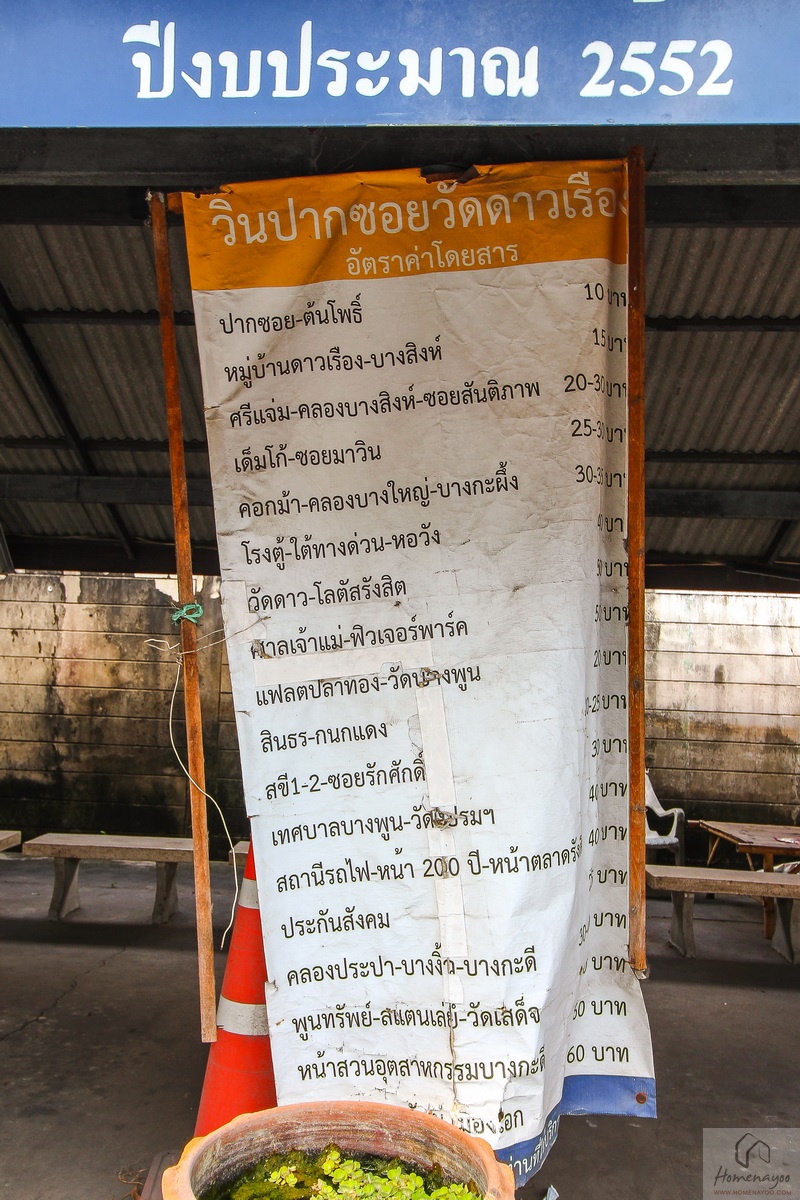 ปีงบประมาณ 2552
วินปากซอยวัดดาวเรือง
อัตราค่าโดยสาร
ปากซอย-ต้นโพธิ์ 10 บาท
หมู่บ้านดาวเรือง-บางสิงห์ 15 บาท
ศรีแจ่ม-คลองบางสิงห์-ซอยสันติภาพ 20-30 บาท
เด็มโก้-ซอยมาวิน 25-30 บาท
คอกม้า-คลองบางใหญ่-บางกะผึ้ง 30-35 บาท
โรงตู้-ใต้ทางด่วน-หอวัง 40 บาท
วัดดาว-โลตัสรังสิต 50 บาท
ศาลเจ้าแม่-ฟิวเจอร์พาร์ค 50 บาท
แฟลตปลาทอง-วัดบางพูน 20 บาท
สินธร-กนกแดง -25 บาท
สขี1-2-ซอยรักศักดิ์ 30 บาท
เทศบาลบางพูน-วัดเปรมฯ 40 บาท
สถานีรถไฟ-หน้า 200 ปี-หน้าตลาดรังสิ 40 บาท
ประกันสังคม บาท
คลองประปา-บางงิ้ว-บางกะดี 30- บาท
พูนทรัพย์-สแตนเล่ย์-วัดเสด็จ บาท
หน้าสวนอุตสาหกรรมบางกะดี 50 บาท
เมืองเอก 60 บาท
Homenayoo
WWW.HOMENAYOO.COM